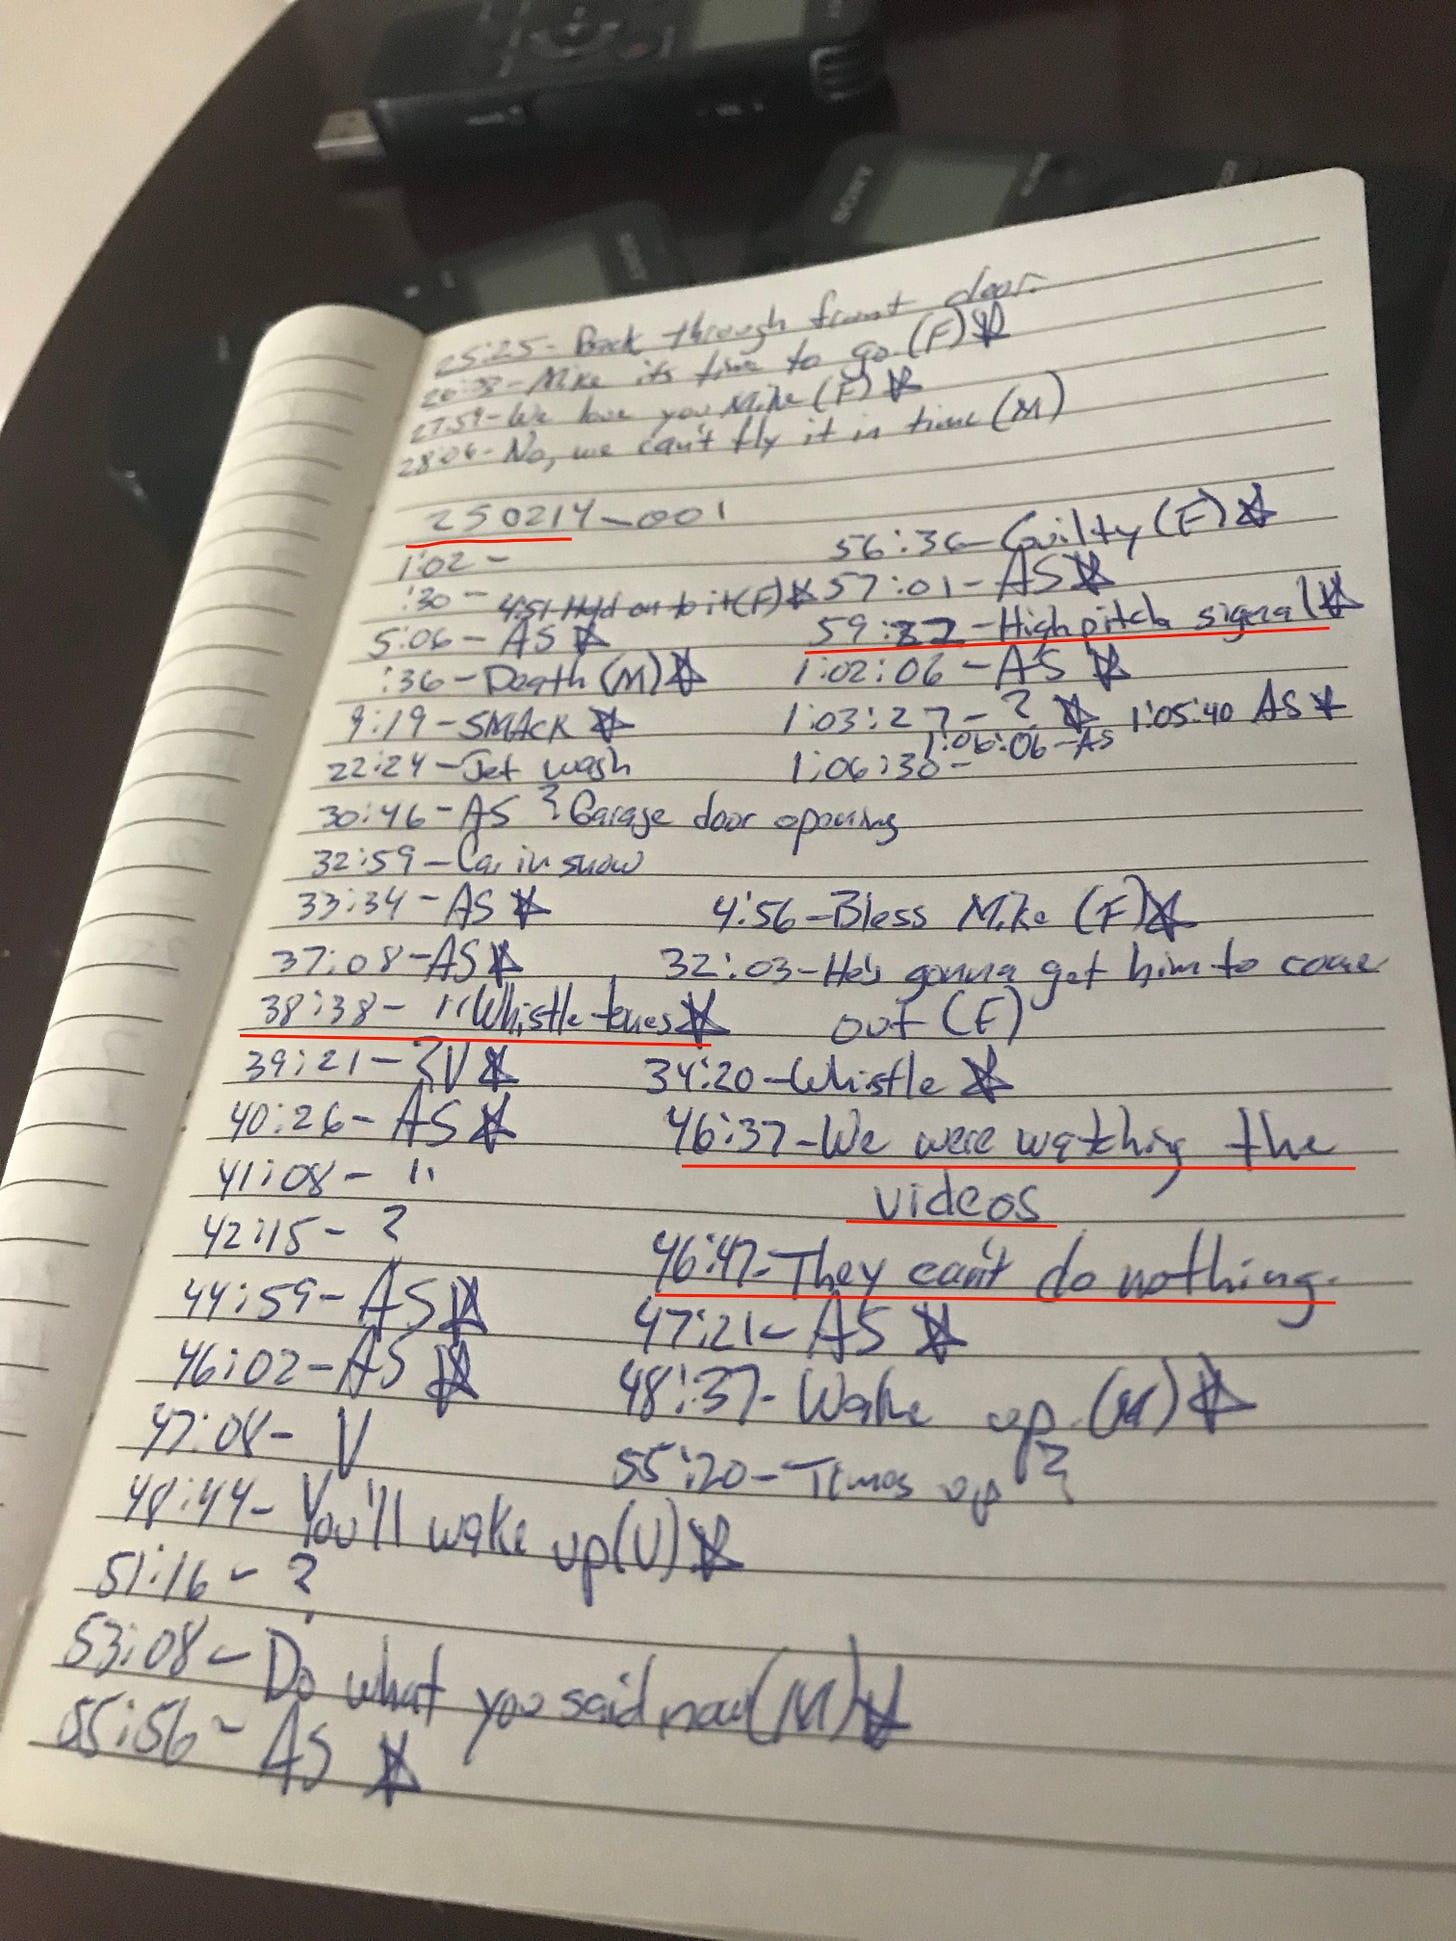 SONY
SONY
25:25- Back through front door.
26:38- Mike its time to go (F)☆
27:59- We love you Mike (F)☆
28:06- No, we can't fly it in time (M)
250214-001
1:02-
:30- 4:51 Hold on to it (F)☆
5:06- AS ☆
:36- Death (M)☆
9:19- SMACK ☆
22:24- Jet wash
30:46- AS & Garage door opening
32:59- Car in snow
33:34- AS ☆
37:08- AS ☆
38:38- " Whistle tones ☆
39:21- ?V ☆
40:26- AS ☆
41:08- "
42:15- ?
44:59- AS ☆
46:02- AS ☆
47:08- V
48:44- You'll wake up (V) ☆
51:16- ?
53:08- Do what you said, now (M) ☆
55:56- AS ☆
56:36- Guilty (F) ☆
57:01- AS ☆
59: - High pitch signal ☆
1:02:06- AS ☆
1:03:27- ? ☆ 1:05:40 AS ☆
1:06:06- AS
1:06:30-
4:56- Bless Mike (F) ☆
32:03- He's gonna get him to come
out (F)
34:20- Whistle ☆
46:37- We were watching the
videos
46:47- They can't do nothing.
47:21- AS ☆
48:37- Wake up. (M) ☆
55:20- Times up ?